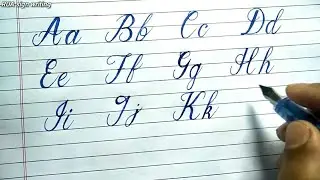 RUA sign writing
Aa Bb Cc Dd
Ee Ff Gg Hh
Ii Jj Kk